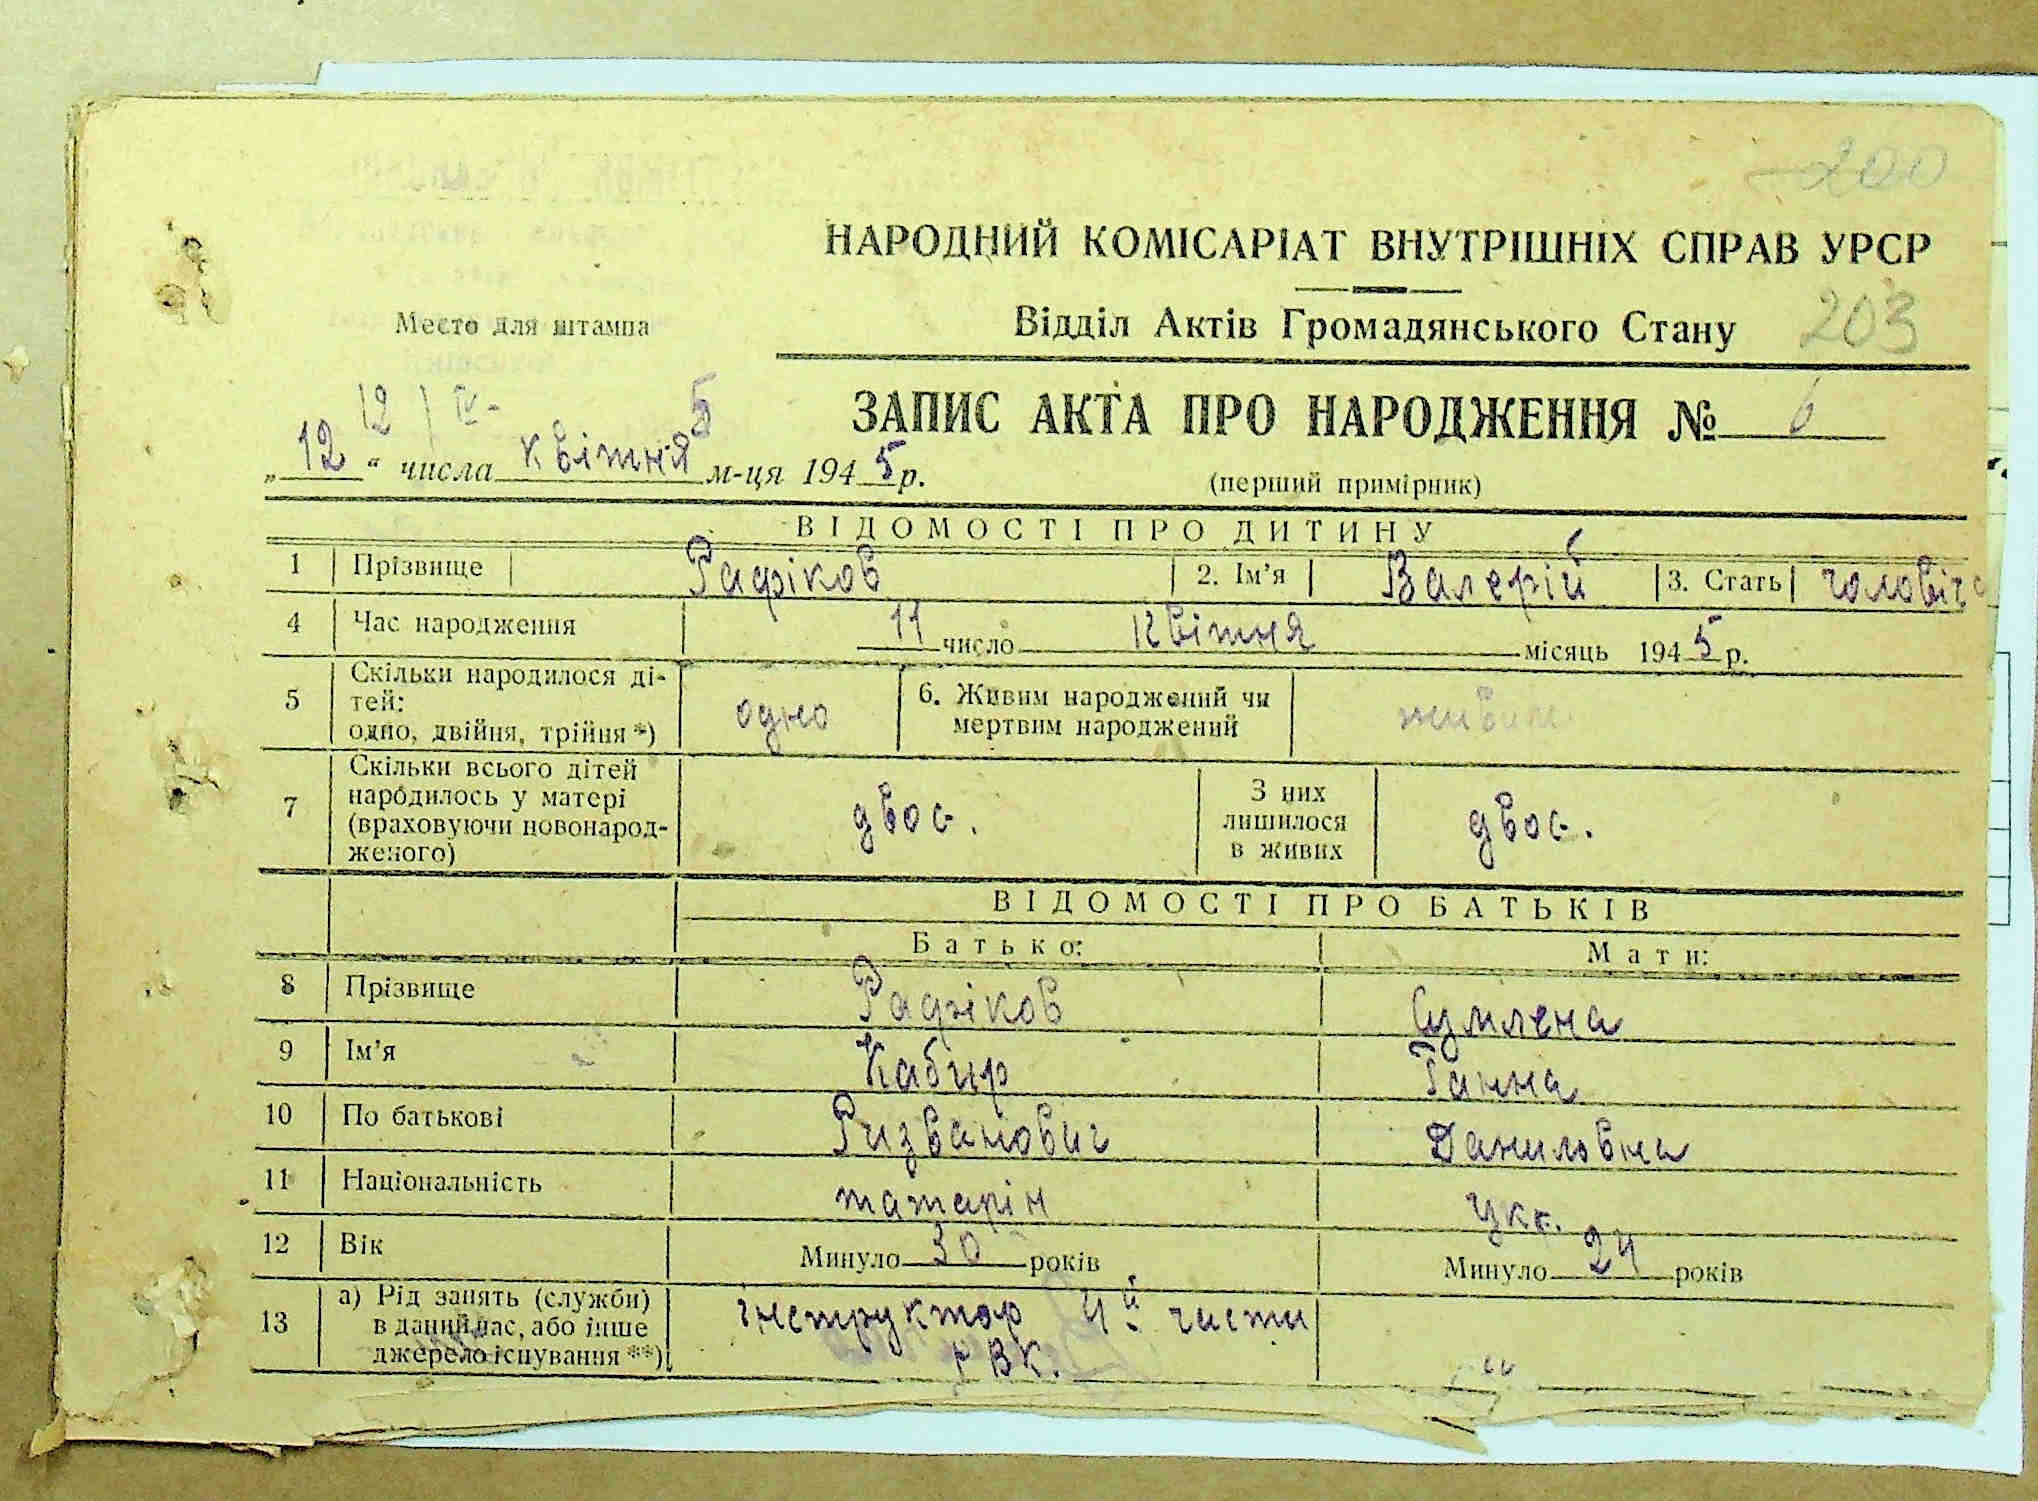 200
НАРОДНИЙ КОМІСАРІАТ ВНУТРІШНІХ СПРАВ УРСР
Место для штампа
Відділ Актів Громадянського Стану 203
12 IV- 5
ЗАПИС АКТА ПРО НАРОДЖЕННЯ № 6
„12“ числа квітня м-ця 1945 р.
(перший примірник)
ВІДОМОСТІ ПРО ДИТИНУ
1 Прізвище Рафіков 2. Ім'я Валерій 3. Стать чоловіча
4 Час народження 11 число квітня місяць 1945 р.
5 Скільки народилося ді-
тей:
одно, двійня, трійня *) одно
6. Живим народжений чи
мертвим народжений живим
7 Скільки всього дітей
народилось у матері
(враховуючи новонарод-
женого) двоє.
З них
лишилося
в живих двоє.
ВІДОМОСТІ ПРО БАТЬКІВ
Батько: Мати:
8 Прізвище Рафіков Сумлена
9 Ім'я Кабир Ганна
10 По батькові Ризванович Даниловна
11 Національність татарін укр.
12 Вік Минуло 30 років Минуло 24 років
13 а) Рід занять (служби)
в даний час, або інше
джерело існування **)
інструктор 4й части
РВК.